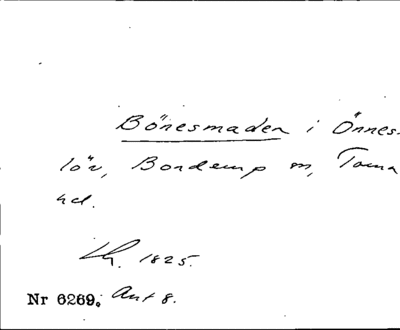 Bönesmaden i Önnes-
löv, Bondemp m, Torna
hd.
Lh. 1825.
Nr 6269. Ant 8.